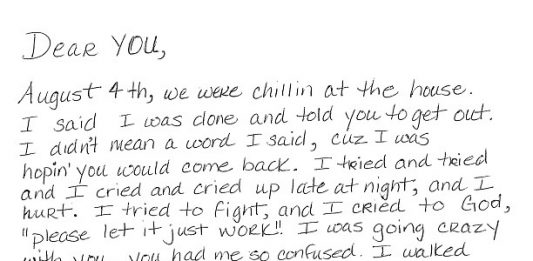 Dear YOU,
August 4th, we were chillin at the house.
I said I was done and told you to get out.
I didn't mean a word I said, cuz I was
hopin' you would come back. I tried and tried
and I cried and cried up late at night, and I
hurt. I tried to fight, and I cried to God,
"please let it just work!! I was going crazy
with you, you had me so confused. I walked